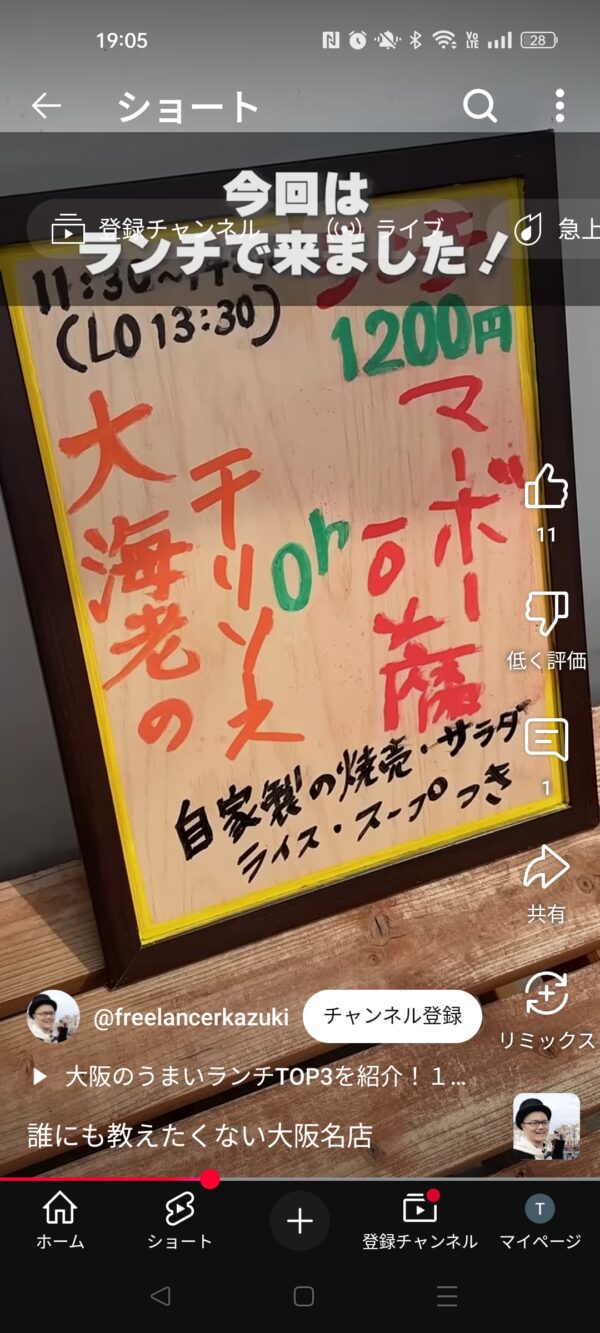 19:05
28
ショート
今回は
ランチで来ました！
登録チャンネル
ライブ
急上
(LO 13:30)
1200円
マーボー
豆腐
or
大海老の
チリソース
自家製の焼売・サラダ
ライス・スープつき
11
低く評価
1
共有
リミックス
@freelancerkazuki
チャンネル登録
大阪のうまいランチTOP3を紹介！１...
誰にも教えたくない大阪名店
ホーム
ショート
登録チャンネル
T
マイページ